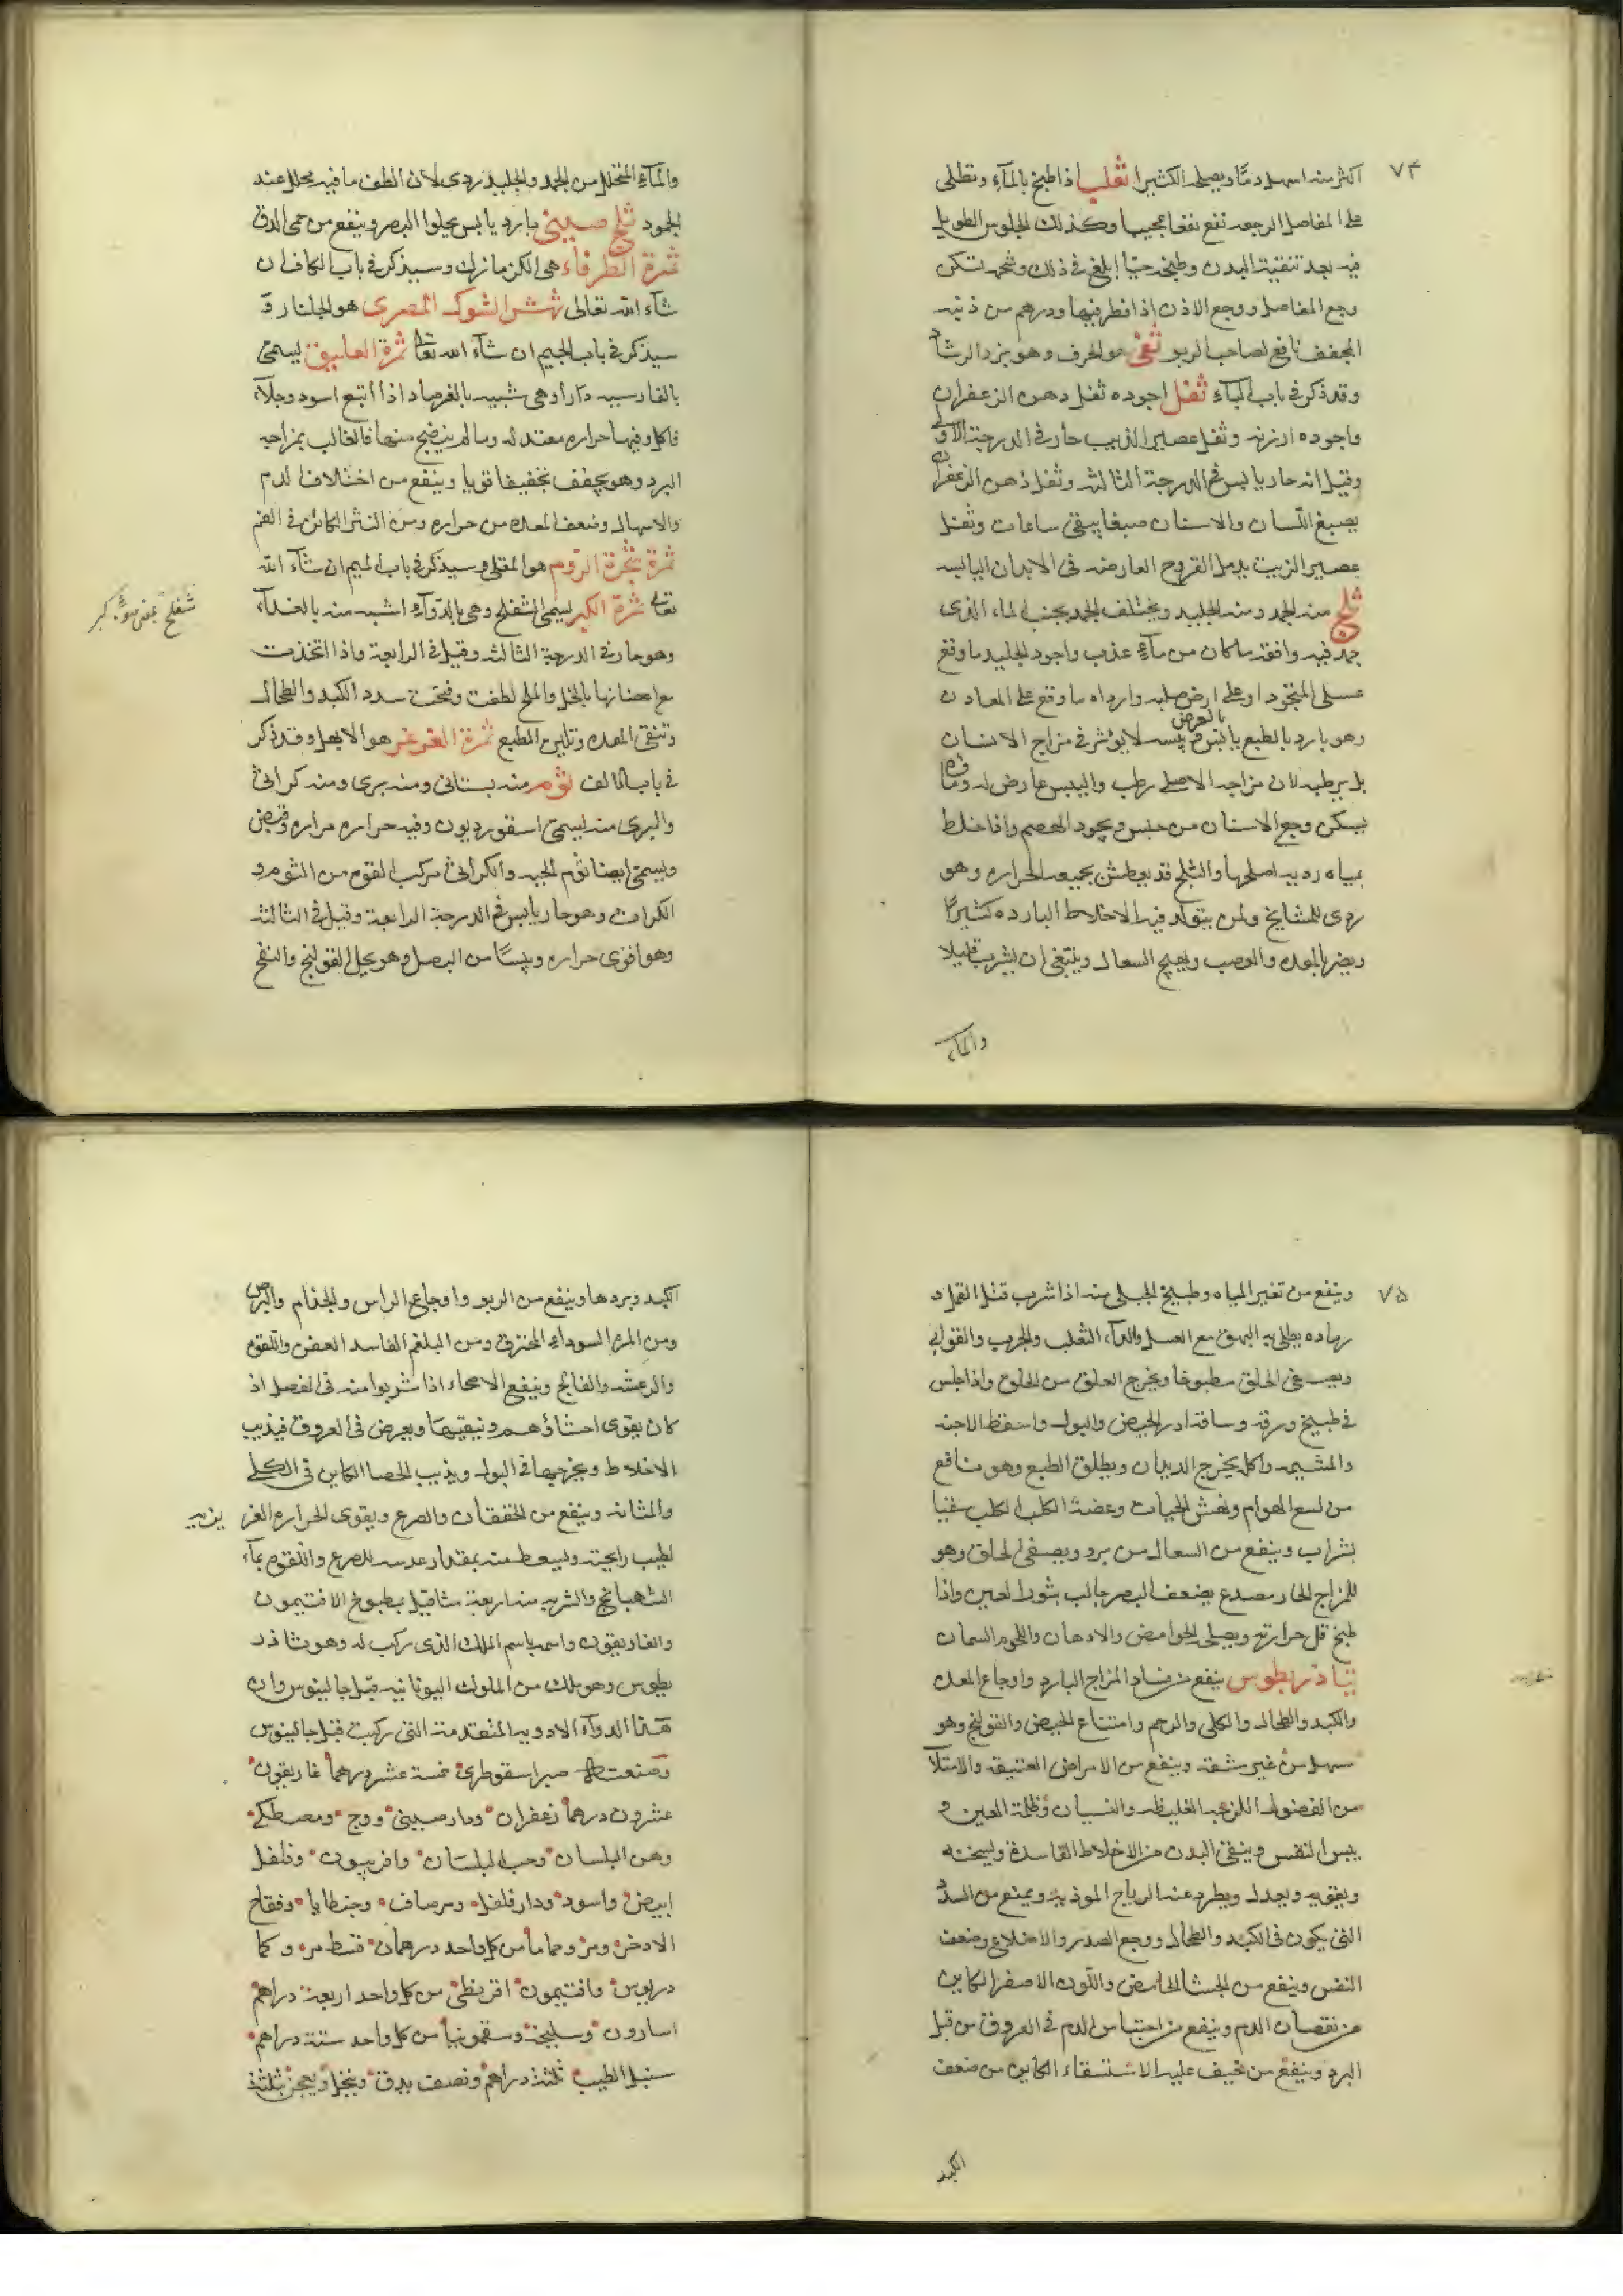 ٧٤
اكثر منه اسهل دمًا ويصلحه الكثيرا ثعلب اذا طبخ بالمآء ونطلى
على المفاصل الوجعه نفع نفعا عجيبا وكذلك الجلوس الطويل
فيه بعد تنقية البدن وطبخه حيّا ابلغ فى ذلك وشحمه تسكن
وجع المفاصل ووجع الاذن اذا قطر فيها ودرهم من ذئيه
المجفف نافع لصاحب الربو ثفى هو الحرف وهو بزر الرشاد
وقد ذكر فى باب الحآء ثفل اجوده ثفل دهن الزعفران
واجوده ارزنه وثفل عصير الزبيب حار فى الدرجة الاولى
وقيل انه حار يابس فى الدرجة الثالثه وثفل دهن الزعفران
يصبغ اللسان والاسنان صبغا يبقى ساعات وثفل
عصير الزيت يدمل القروح العارضه فى الابدان اليابسه
ثلج منه الجمد ومنه الجليد ويختلف الجمد بجنب الماء الذى
جمد فيه وافقه ما كان من مآء عذب واجود الجليد ما وقع
على او على ارض صلبه وارداه ما وقع على المعادن
وهو بارد بالطبع يابس بالعرض لا يوثر فى مزاج الانسان
بل يرطبه لان مزاجه الاصلى رطب واليبس عارض له وماؤه
يسكن وجع الاسنان من حبس ويجود الهضم واذا خلط
بمياه رديه اصلحها والثلج قد يعطش بجمعه الحراره وهو
ردى للمشايخ ولمن يتولد فيه الاخلاط البارده كثيرًا
ويضر بالمعده والعصب ويهيج السعال وينبغى ان يشرب قليلا
والمآء
والمآء المتحلل من الجمد والجليد ردى لان الطف ما فيه تحلل عند
الجمود ثلج صينى بارد يابس يجلوا البصر وينفع من حمى الدق
ثمرة الطرفاء هى الكزمازك وسيذكر فى باب الكاف ان
شآء الله تعالى ثمش الشوك المصرى هو الجلنار و
سيذكر فى باب الجيم ان شآء الله تعالى ثمرة العليق يسمى
بالفارسيه دارا وهى شبيه بالفرصاد اذا أتبع اسود وجلآء
فاكل وفيها حراره معتدله وما لم ينضج منها فالغالب بمزاجه
البرد وهو يجفف تجفيفا قويا وينفع من اختلاف الدم
والاسهال وضعف المعده من حراره ومن البثر الكائن فى الفم
ثمرة شجرة الروم هو المقل وسيذكر فى باب الميم ان شآء الله
تعالى ثمرة الكبر يسمى الشفلح وهى بالدوآء اشبه منه بالغذآء
وهو حار فى الدرجة الثالثه وقيل فى الرابعة واذا اتخذت
مع اغصانها بالخل والملح لطفت وفتحت سدد الكبد والطحال
وتنقى المعده وتلين الطبع ثمرة العرعر هو الابهل وقد ذكر
فى باب الالف ثوم منه بستانى ومنه برى ومنه كراثى
والبرى منه يسمى اسقورديون وفيه حراره مراره وقبض
ويسمى ايضا ثوم الحيه والكراثى مركب القوه من الثوم و
الكراث وهو حار يابس فى الدرجة الرابعة وقيل فى الثالثه
وهو اقوى حراره ويبسًا من البصل وهو يحل القولنج والنفخ
شفلح
٧٥
وينفع من تغير المياه وطبيخ الجبلى منه اذا شرب قتل القمل و
رماده يطلى به البهق مع العسل والدآء الثعلب والجرب والقوابى
ويصفى الحلق مطبوخا ويخرج العلق من الحلق واذا جلس
فى طبيخ ورقه وساقه ادر الحيض والبول واسقط الاجنه
والمشيمه واكله يخرج الديدان ويطلق الطبع وهو نافع
من لسع الهوام ونهش الحيات وعضة الكلب الكلب سقيا
بشراب وينفع من السعال من برد ويصفى الحلق وهو
للمزاج الحار مصدع يضعف البصر جالب بثورا لعين واذا
طبخ قل حرارته ويصلحه الحوامض والادهان واللحوم السمان
ثياذريطوس ينفع من فساد المزاج البارد واوجاع المعده
والكبد والطحال والكلى والرحم وامتناع الحيض والقولنج وهو
سهل من غير مشقه وينفع من الامراض العتيقه والامتلآ
من الفضول اللزجه الغليظه والنسيان وظلمة العين و
يبس النفس وينقى البدن من الاخلاط الفاسدة ويسخنه
ويقويه ويجدد ويطرد عنه الرياح الموذيه ويمنع من السدد
التى يكون فى الكبد والطحال ووجع الصدر والاضلاع وضعف
النفس وينفع من الجشا الحامض واللون الاصفر الكاين
من نقصان الدم وينفع من احتباس الدم فى العروق من قبل
البرد وينفع من خيف عليه الاستسقاء الكاين من ضعف
الكبد
الكبد وبردها وينفع من الربو واوجاع الراس والجذام والبرص
ومن المره السوداء المحترق ومن البلغم الفاسد العفن واللقوه
والرعشه والفالج وينفع الاصحاء اذا شربوا منه فى الفصل اذ
كان يقوى احشاؤهم وينقيها ويعرض فى العروق فيذيب
الاخلاط ويخرجها فى البول ويذيب الحصا الكاين فى الكلى
والمثانه وينفع من الخفقان والصرع ويقوى الحراره الغر يزيه
لطيب رايحته ويسعط منه بمقدار عدسه للصرع واللقوه بمآء
الشهبانج والشربه منه اربعة مثاقيل بمطبوخ الافتيمون
والغاريقون واسمه باسم الملك الذى ركب له وهو ثاذر
يطوس وهو ملك من الملوك اليونانيه قبل جالينوس وان
هذا الدوآء الادويه المتقدمة التى ركبت قبل جالينوس
وصنعته صبر اسقوطرى خمسة عشر درهما غاريقون
عشرون درهما زعفران ودارصينى ووج ومصطكى
ودهن البلسان وحب البلسان وافربيون وفلفل
ابيض واسود ودارفلفل ومرصاف وجنطايا وفقاح
الاذخر ومز وحماما من كل واحد درهمان قسط مر وكما
دريوس وافتيمون اقريطى من كل واحد اربعة دراهم
اسارون وسليخة وسقمونيا من كل واحد ستة دراهم
سنبل الطيب ثلثة دراهم ونصف يدق وينخل ويعجن بثلثة